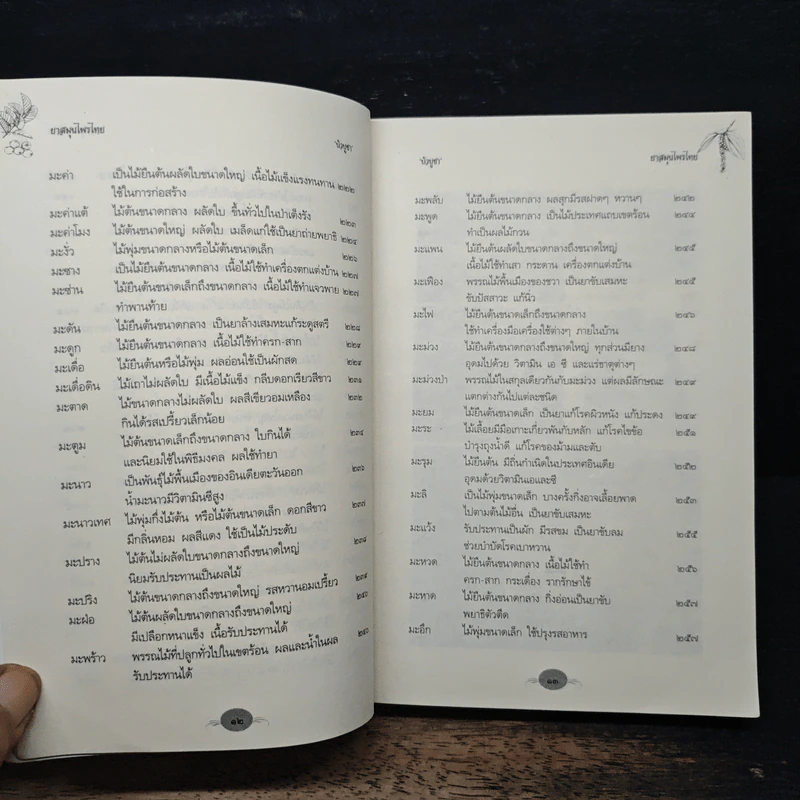 ยาสมุนไพรไทย
"บัวบูชา"
มะค่า เป็นไม้ยืนต้นผลัดใบขนาดใหญ่ เนื้อไม้แข็งแรงทนทาน ๒๒๒
ใช้ในการก่อสร้าง
มะค่าแต้ ไม้ต้นขนาดกลาง ผลัดใบ ขึ้นทั่วไปในป่าเต็งรัง ๒๒๓
มะค่าโมง ไม้ต้นขนาดใหญ่ ผลัดใบ เมล็ดแก่ใช้เป็นยาถ่ายพยาธิ ๒๒๔
มะงั่ว ไม้พุ่มขนาดกลางหรือไม้ต้นขนาดเล็ก ๒๒๖
มะซาง เป็นไม้ยืนต้นขนาดกลาง เนื้อไม้ใช้ทำเครื่องตกแต่งบ้าน ๒๒๗
มะซ่าน ไม้ยืนต้นขนาดเล็กถึงขนาดกลาง เนื้อไม้ใช้ทำแจวพาย ๒๒๗
ทำพานท้าย
มะดัน ไม้ยืนต้นขนาดกลาง เป็นยาล้างเสมหะแก้ระดูสตรี ๒๒๘
มะดูก ไม้ยืนต้นขนาดกลาง เนื้อไม้ใช้ทำครก-สาก ๒๒๙
มะเดื่อ ไม้ยืนต้นหรือไม้พุ่ม ผลอ่อนใช้เป็นผักสด ๒๒๙
มะเดื่อดิน ไม้เถาไม่ผลัดใบ มีเนื้อไม้แข็ง กลีบดอกเรียวสีขาว ๒๓๑
มะตาด ไม้ขนาดกลางไม่ผลัดใบ ผลสีเขียวอมเหลือง ๒๓๒
กินได้รสเปรี้ยวเล็กน้อย
มะตูม ไม้ต้นขนาดเล็กถึงขนาดกลาง ใบกินได้ ๒๓๔
และนิยมใช้ในพิธีมงคล ผลใช้ทำยา
มะนาว เป็นพันธุ์ไม้พื้นเมืองของอินเดียตะวันออก ๒๓๖
น้ำมะนาวมีวิตามินซีสูง
มะนาวเทศ ไม้พุ่มกึ่งไม้ต้น หรือไม้ต้นขนาดเล็ก ดอกสีขาว ๒๓๗
มีกลิ่นหอม ผลสีแดง ใช้เป็นไม้ประดับ
มะปราง ไม้ต้นไม่ผลัดใบขนาดกลางถึงขนาดใหญ่ ๒๓๘
นิยมรับประทานเป็นผลไม้
มะปริง ไม้ต้นขนาดกลางถึงขนาดใหญ่ รสหวานอมเปรี้ยว ๒๓๙
มะฝ่อ ไม้ต้นผลัดใบขนาดกลางถึงขนาดใหญ่ ๒๔๐
มีเปลือกหนาแข็ง เนื้อรับประทานได้
มะพร้าว พรรณไม้ที่ปลูกทั่วไปในเขตร้อน ผลและน้ำในผล ๒๔๐
รับประทานได้
๑๒
"บัวบูชา"
ยาสมุนไพรไทย
มะพลับ ไม้ยืนต้นขนาดกลาง ผลสุกมีรสฝาดๆ หวานๆ ๒๔๒
มะพูด ไม้ยืนต้นขนาดกลาง เป็นไม้ประเทศแถบเขตร้อน ๒๔๔
ทำเป็นผลไม้กวน
มะแพน ไม้ยืนต้นผลัดใบขนาดกลางถึงขนาดใหญ่ ๒๔๕
เนื้อไม้ใช้ทำเสา กระดาน เครื่องตกแต่งบ้าน
มะเฟือง พรรณไม้พื้นเมืองของชวา เป็นยาขับเสมหะ ๒๔๕
ขับปัสสาวะ แก้นิ่ว
มะไฟ ไม้ยืนต้นขนาดเล็กถึงขนาดกลาง ๒๔๖
ใช้ทำเครื่องมือเครื่องใช้ต่างๆ ภายในบ้าน
มะม่วง ไม้ยืนต้นขนาดกลางถึงขนาดใหญ่ ทุกส่วนมียาง ๒๔๘
อุดมไปด้วย วิตามิน เอ ซี และแร่ธาตุต่างๆ
มะม่วงป่า พรรณไม้ในสกุลเดียวกันกับมะม่วง แต่ผลมีลักษณะ ๒๔๙
แตกต่างกันไปแต่ละชนิด
มะยม ไม้ยืนต้นขนาดเล็ก เป็นยาแก้โรคผิวหนัง แก้ประดง ๒๔๙
มะระ ไม้เลื้อยมีมือเกาะเกี่ยวพันกับหลัก แก้โรคไขข้อ ๒๕๑
บำรุงถุงน้ำดี แก้โรคของม้ามและตับ
มะรุม ไม้ยืนต้น มีถิ่นกำเนิดในประเทศอินเดีย ๒๕๒
อุดมด้วยวิตามินเอและซี
มะลิ เป็นไม้พุ่มขนาดเล็ก บางครั้งกิ่งอาจเลื้อยพาด ๒๕๓
ไปตามต้นไม้อื่น เป็นยาขับเสมหะ
มะแว้ง รับประทานเป็นผัก มีรสขม เป็นยาขับลม ๒๕๕
ช่วยบำบัดโรคเบาหวาน
มะหวด ไม้ยืนต้นขนาดกลาง เนื้อไม้ใช้ทำ ๒๕๖
ครก-สาก กระเดื่อง รากรักษาไข้
มะหาด ไม้ยืนต้นขนาดกลาง กิ่งอ่อนเป็นยาขับ ๒๕๗
พยาธิตัวตืด
มะอึก ไม้พุ่มขนาดเล็ก ใช้ปรุงรสอาหาร ๒๕๗
๑๓